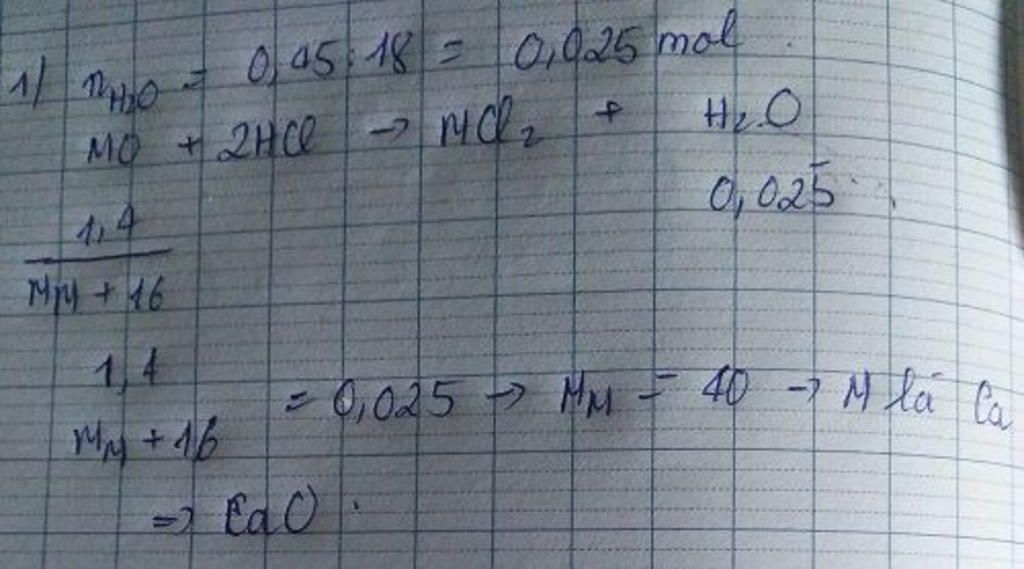 1) nH2O = 0,45:18 = 0,025 mol
MO + 2HCl → MCl2 + H2O
0,025
1,4
MM + 16
1,4
MM + 16 = 0,025 → MM = 40 → M là Ca
⇒ CaO.